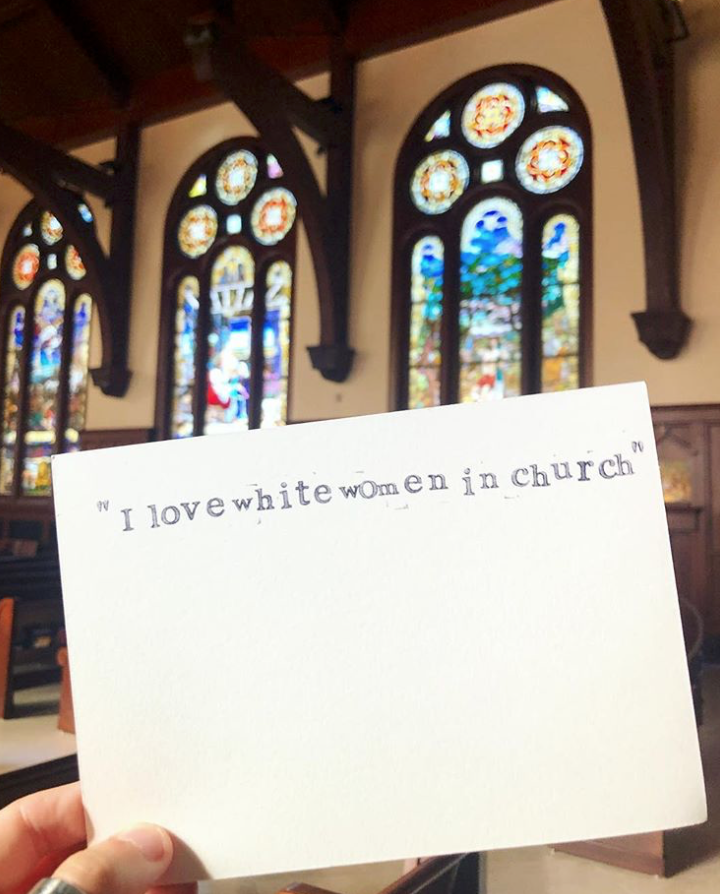 "I love white women in church"